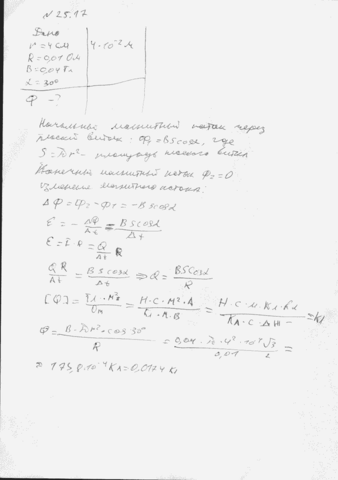 N 25.17
Дано
r = 4 см 4·10⁻² м
R = 0,01 Ом
B = 0,04 Тл
α = 30°
Φ - ?
Начальный магнитный поток через
плоский виток: Φ₁ = BScosα, где
S = πr² - площадь плоского витка
Конечный магнитный поток Φ₂ = 0
Изменение магнитного потока:
ΔΦ = Φ₂ - Φ₁ = -BScosα
ℰ = - ΔΦ/Δt = BScosα/Δt
ℰ = I R = Q/Δt R
QR/Δt = BScosα/Δt ⇒ Q = BScosα/R
[Q] = Тл·м²/Ом = Н·с·м²·А/Кл·м·В = Н·с·м·Кл·Кл/Кл·с·Дж = Кл
Φ = B·πr²·cos30°/R = 0,04·π·4²·10⁻⁴√3/0,01 2 =
≈ 173,8·10⁻⁴ Кл = 0,0174 Кл